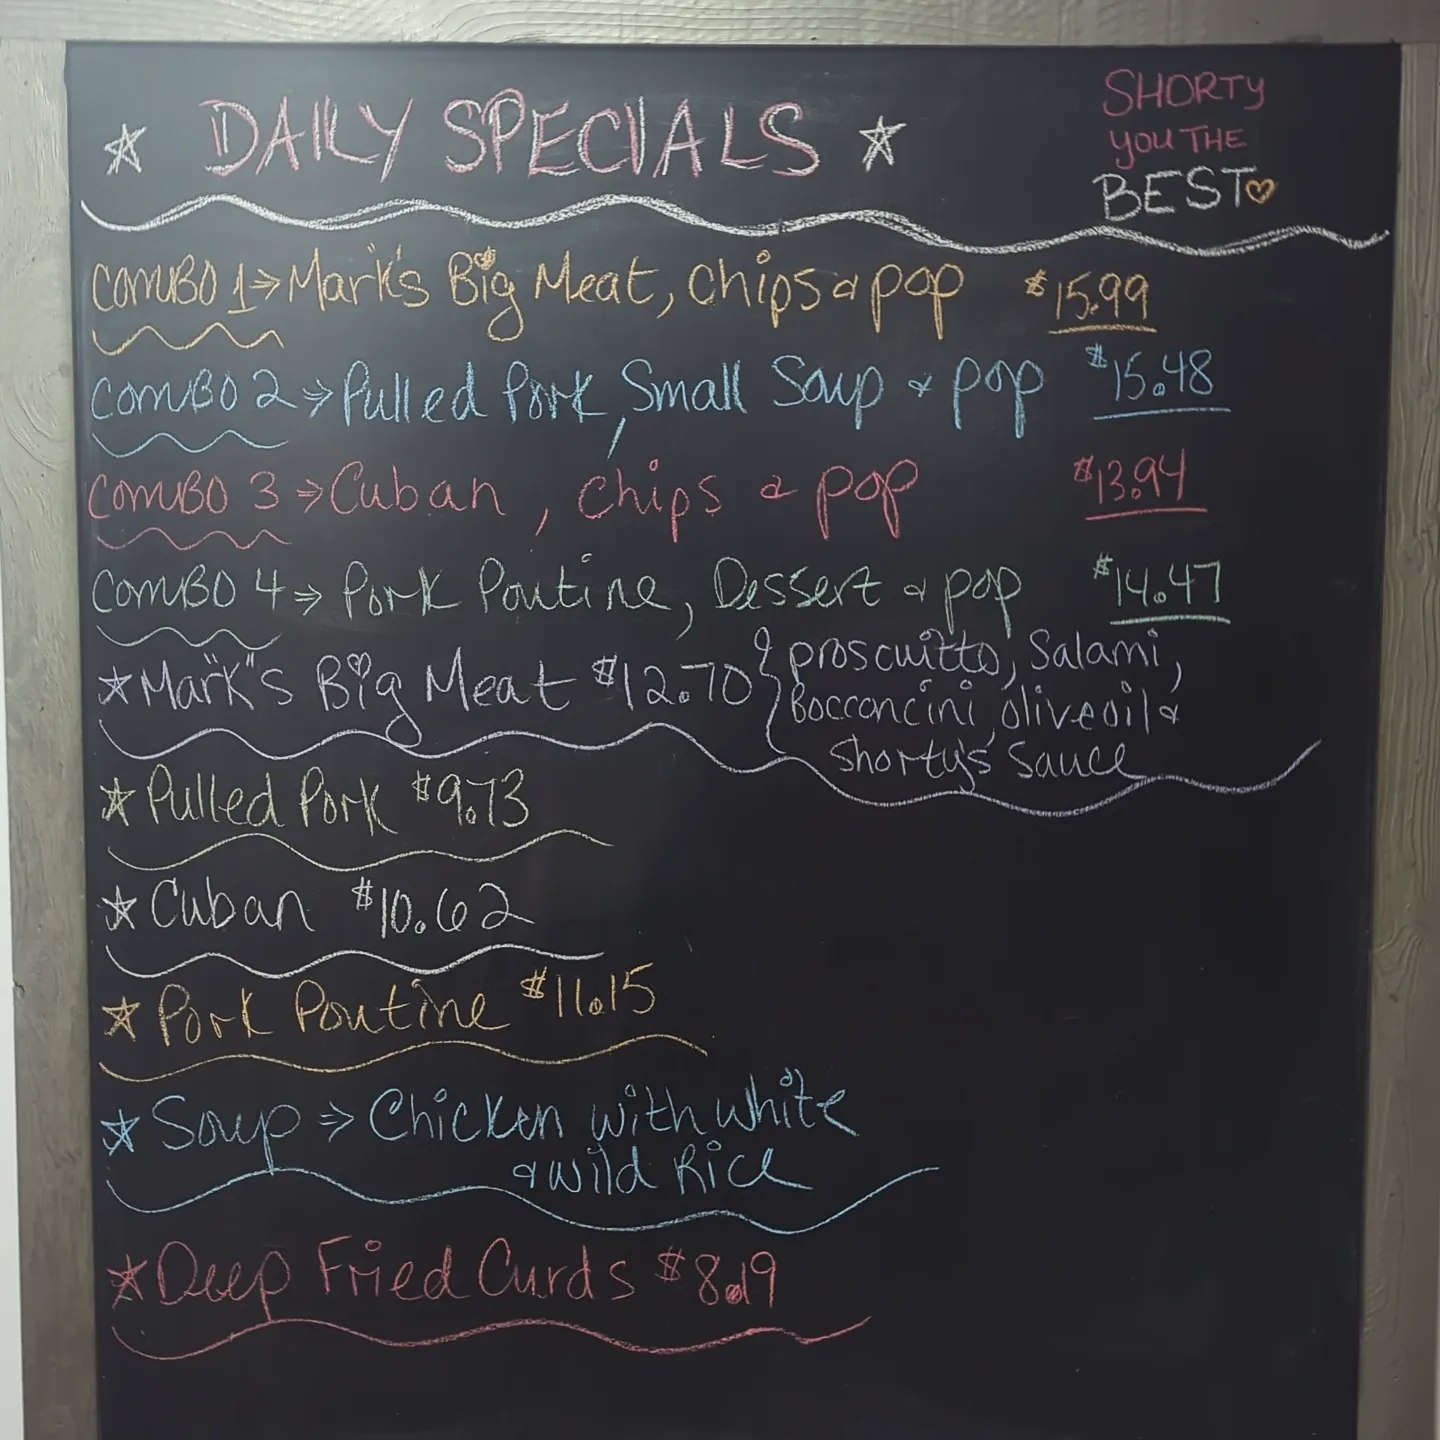 ☆ DAILY SPECIALS ☆
SHORTY
YOU THE
BEST♡
COMBO 1 ⇒ Mar"k"s Big Meat, Chips & pop $15.99
COMBO 2 ⇒ Pulled Pork, Small Soup & pop $15.48
COMBO 3 ⇒ Cuban, Chips & pop $13.94
COMBO 4 ⇒ Pork Poutine, Dessert & pop $14.47
☆ Mar"k"s Big Meat $12.70 { proscuitto, Salami,
Bocconcini, olive oil &
Shorty's Sauce
☆ Pulled Pork $9.73
☆ Cuban $10.62
☆ Pork Poutine $11.15
☆ Soup ⇒ Chicken with white
& wild Rice
☆ Deep Fried Curds $8.19